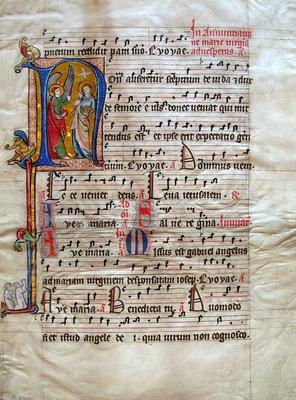 In Annunciatio
ne marie virginis
ad vesperas. a.
puerum reddidit patri suo. Evovae.
Non auferetur sceptrum de iuda et dux
de femore eius donec veniat qui mit
tendus est et ipse erit expectatio gen
tium. Evovae. a Dominus veni
Ecce veniet deus. a Leva ierusalem. R
Ave maria. Salve regina. Invitat
Ave maria. Missus est gabriel angelus
ad mariam virginem desponsatam iosep. Evovae. a
Ave maria. a Benedicta tu. a Quomodo
fiet istud angele de i. quia virum non cognosco.